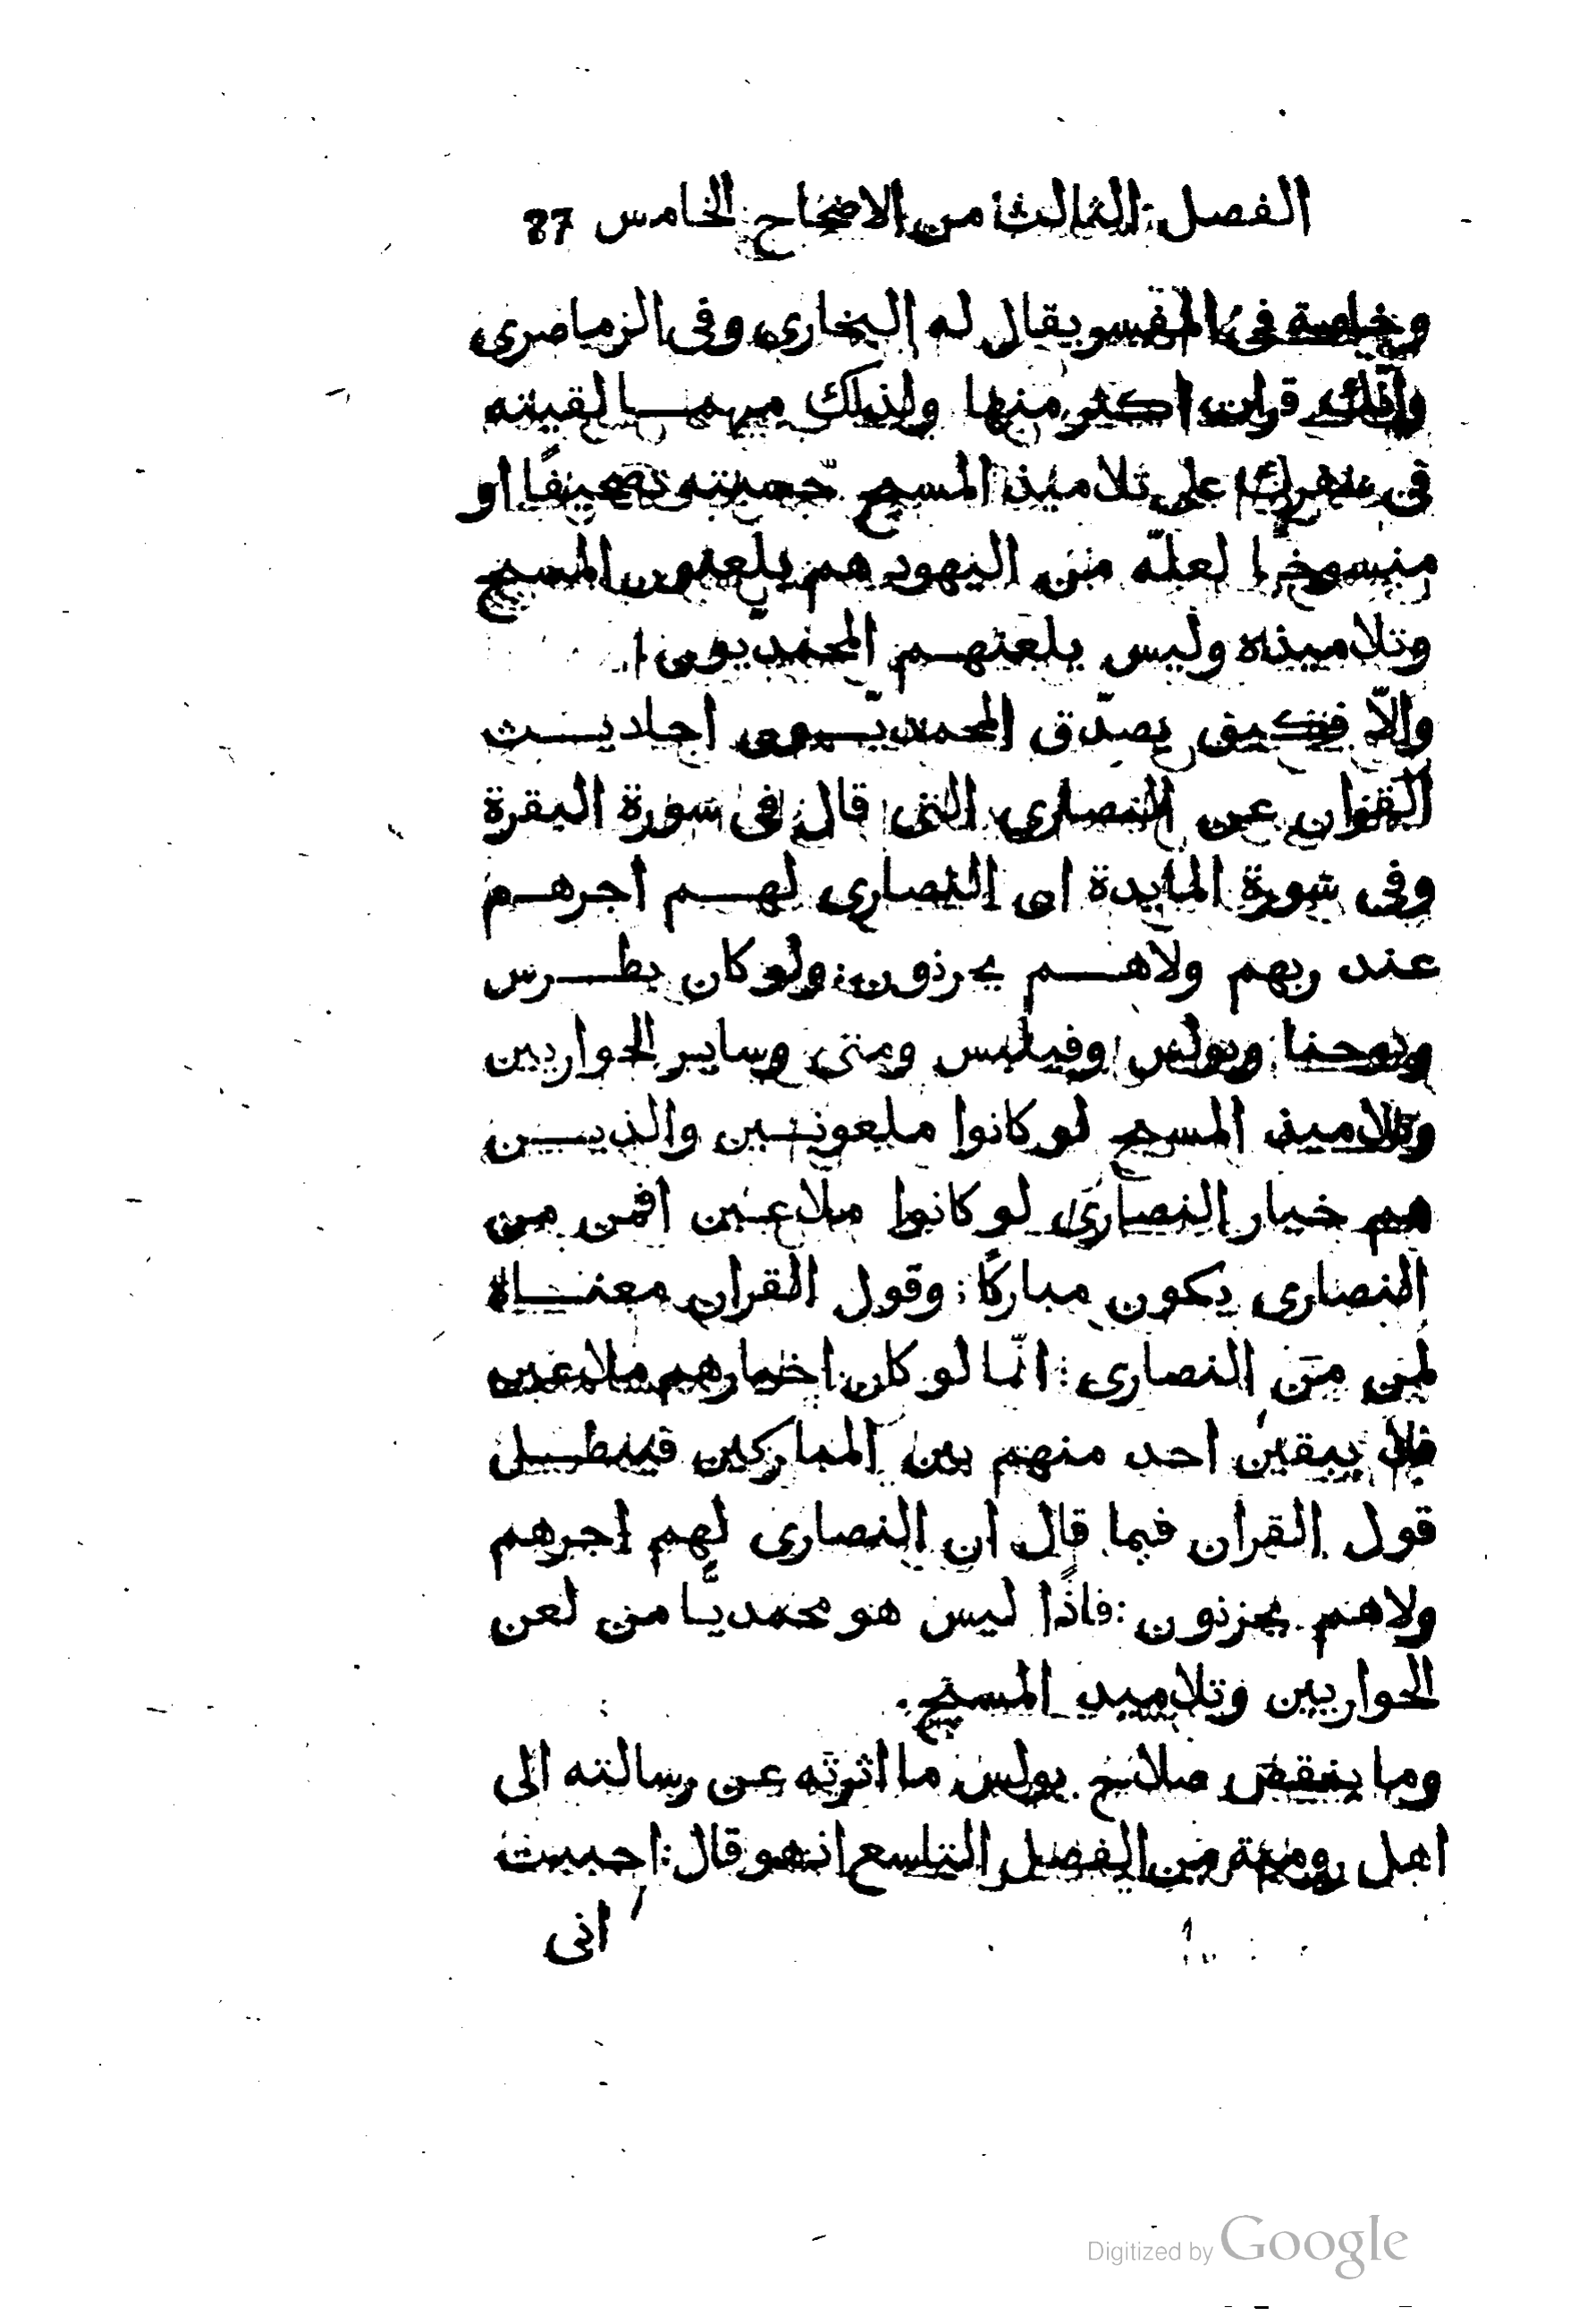 الفصل الثالث من الاصحاح الخامس 87
وخاصة فى المفسر يقال له البخارى وفى الزماصرى
وانّك قرات اكثر منها ولذلك مهما لقيته
فى على تلاميذ المسيح حسبته تصحيفًا او
منسوخًا لعلّه من اليهود هم يلعنون المسيح
وتلاميذه وليس يلعنهم المحمديّون
والّا فكيف يصدّق المحمديّون احاديث
القران عن النصارى التى قال فى سورة البقرة
وفى سورة المايدة ان النصارى لهم اجرهم
عند ربهم ولاهم يحزنون: ولو كان بطرس
ويوحنا وبولس وفيلبس ومتى وساير الحواريين
وتلاميذ المسيح لو كانوا ملعونين والذين
هم خيار النصارى لو كانوا ملاعين افمن من
النصارى يكون مباركًا: وقول القران معناه
لمن من النصارى: انّما لو كان اخيارهم ملاعين
فلا يبقين احد منهم بين المباركين فيبطل
قول القران فيما قال ان النصارى لهم اجرهم
ولاهم يحزنون: فاذًا ليس هو محمديًّا من لعن
الحواريين وتلاميد المسيح.
وما ينقض صلاح بولس ما اثرته عن رسالته الى
اهل رومية من الفصل التاسع انه هو قال: احببت
انى
Digitized by Google